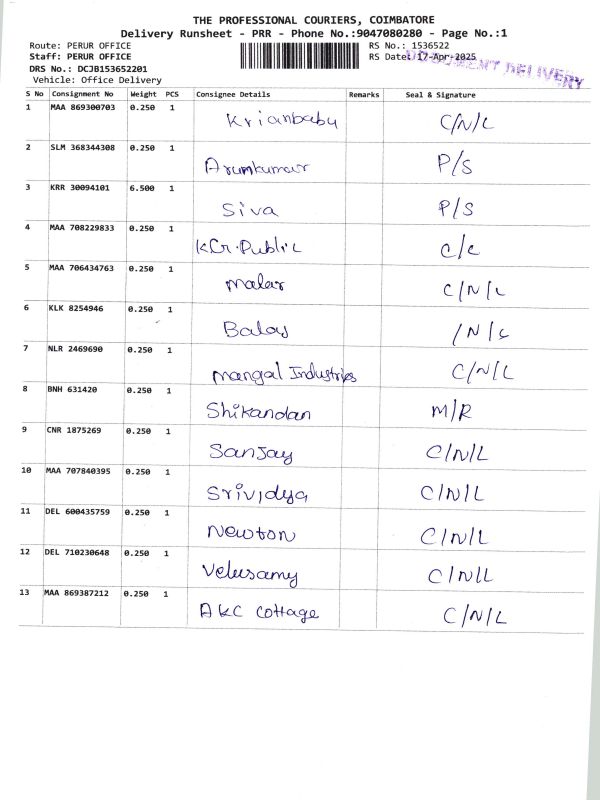 THE PROFESSIONAL COURIERS, COIMBATORE
Delivery Runsheet - PRR - Phone No.:9047080280 - Page No.:1
Route: PERUR OFFICE RS No.: 1536522
Staff: PERUR OFFICE RS Date: 17-Apr-2025
DOCUMENT DELIVERY
DRS No.: DCJB153652201
Vehicle: Office Delivery
S No Consignment No Weight PCS Consignee Details Remarks Seal & Signature
1 MAA 869300703 0.250 1 Krianbabu C/N/L
2 SLM 368344308 0.250 1 Arumkumar P/S
3 KRR 30094101 6.500 1 Siva P/S
4 MAA 708229833 0.250 1 KG.Public C/C
5 MAA 706434763 0.250 1 Malar C/N/L
6 KLK 8254946 0.250 1 Balaj /N/L
7 NLR 2469690 0.250 1 Mangal Industries C/N/L
8 BNH 631420 0.250 1 Shikandan M/R
9 CNR 1875269 0.250 1 Sanjay C/N/L
10 MAA 707840395 0.250 1 Srividya C/N/L
11 DEL 600435759 0.250 1 Newton C/N/L
12 DEL 710230648 0.250 1 Velusamy C/N/L
13 MAA 869387212 0.250 1 AKC Cottage C/N/L